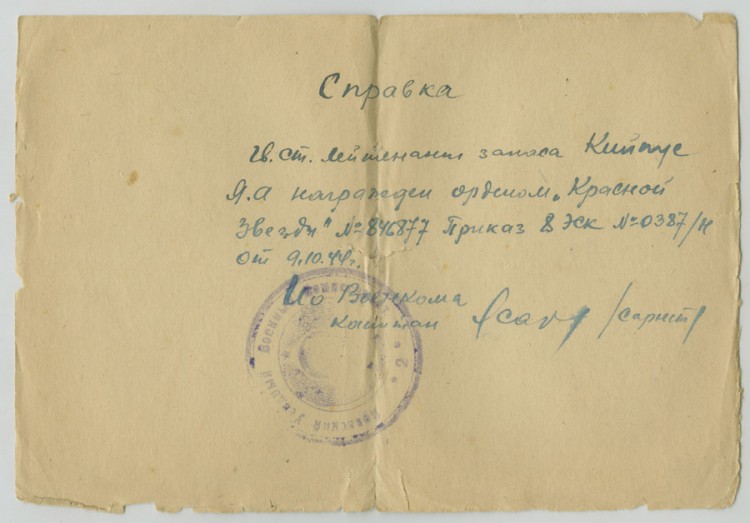 Справка
Гв. ст. лейтенант запаса Кийпус
Я.А награжден орденом „Красной
Звезды" № 846877 Приказ 8 эск № 0387/н
от 9.10.44г.
Ио Военкома
капитан
Уездный Военный
2